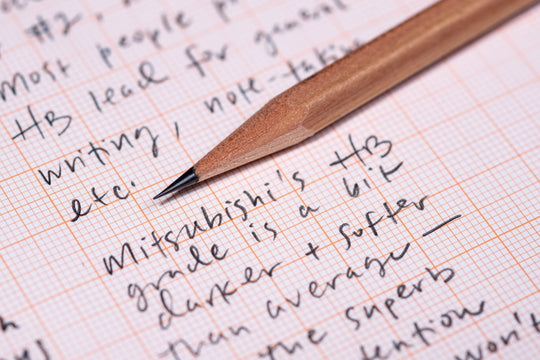 #2,
most people p
HB lead for general
writing, note-taking
etc.
Mitsubishi's HB
grade is a bit
darker + softer
than average —
the superb
won't